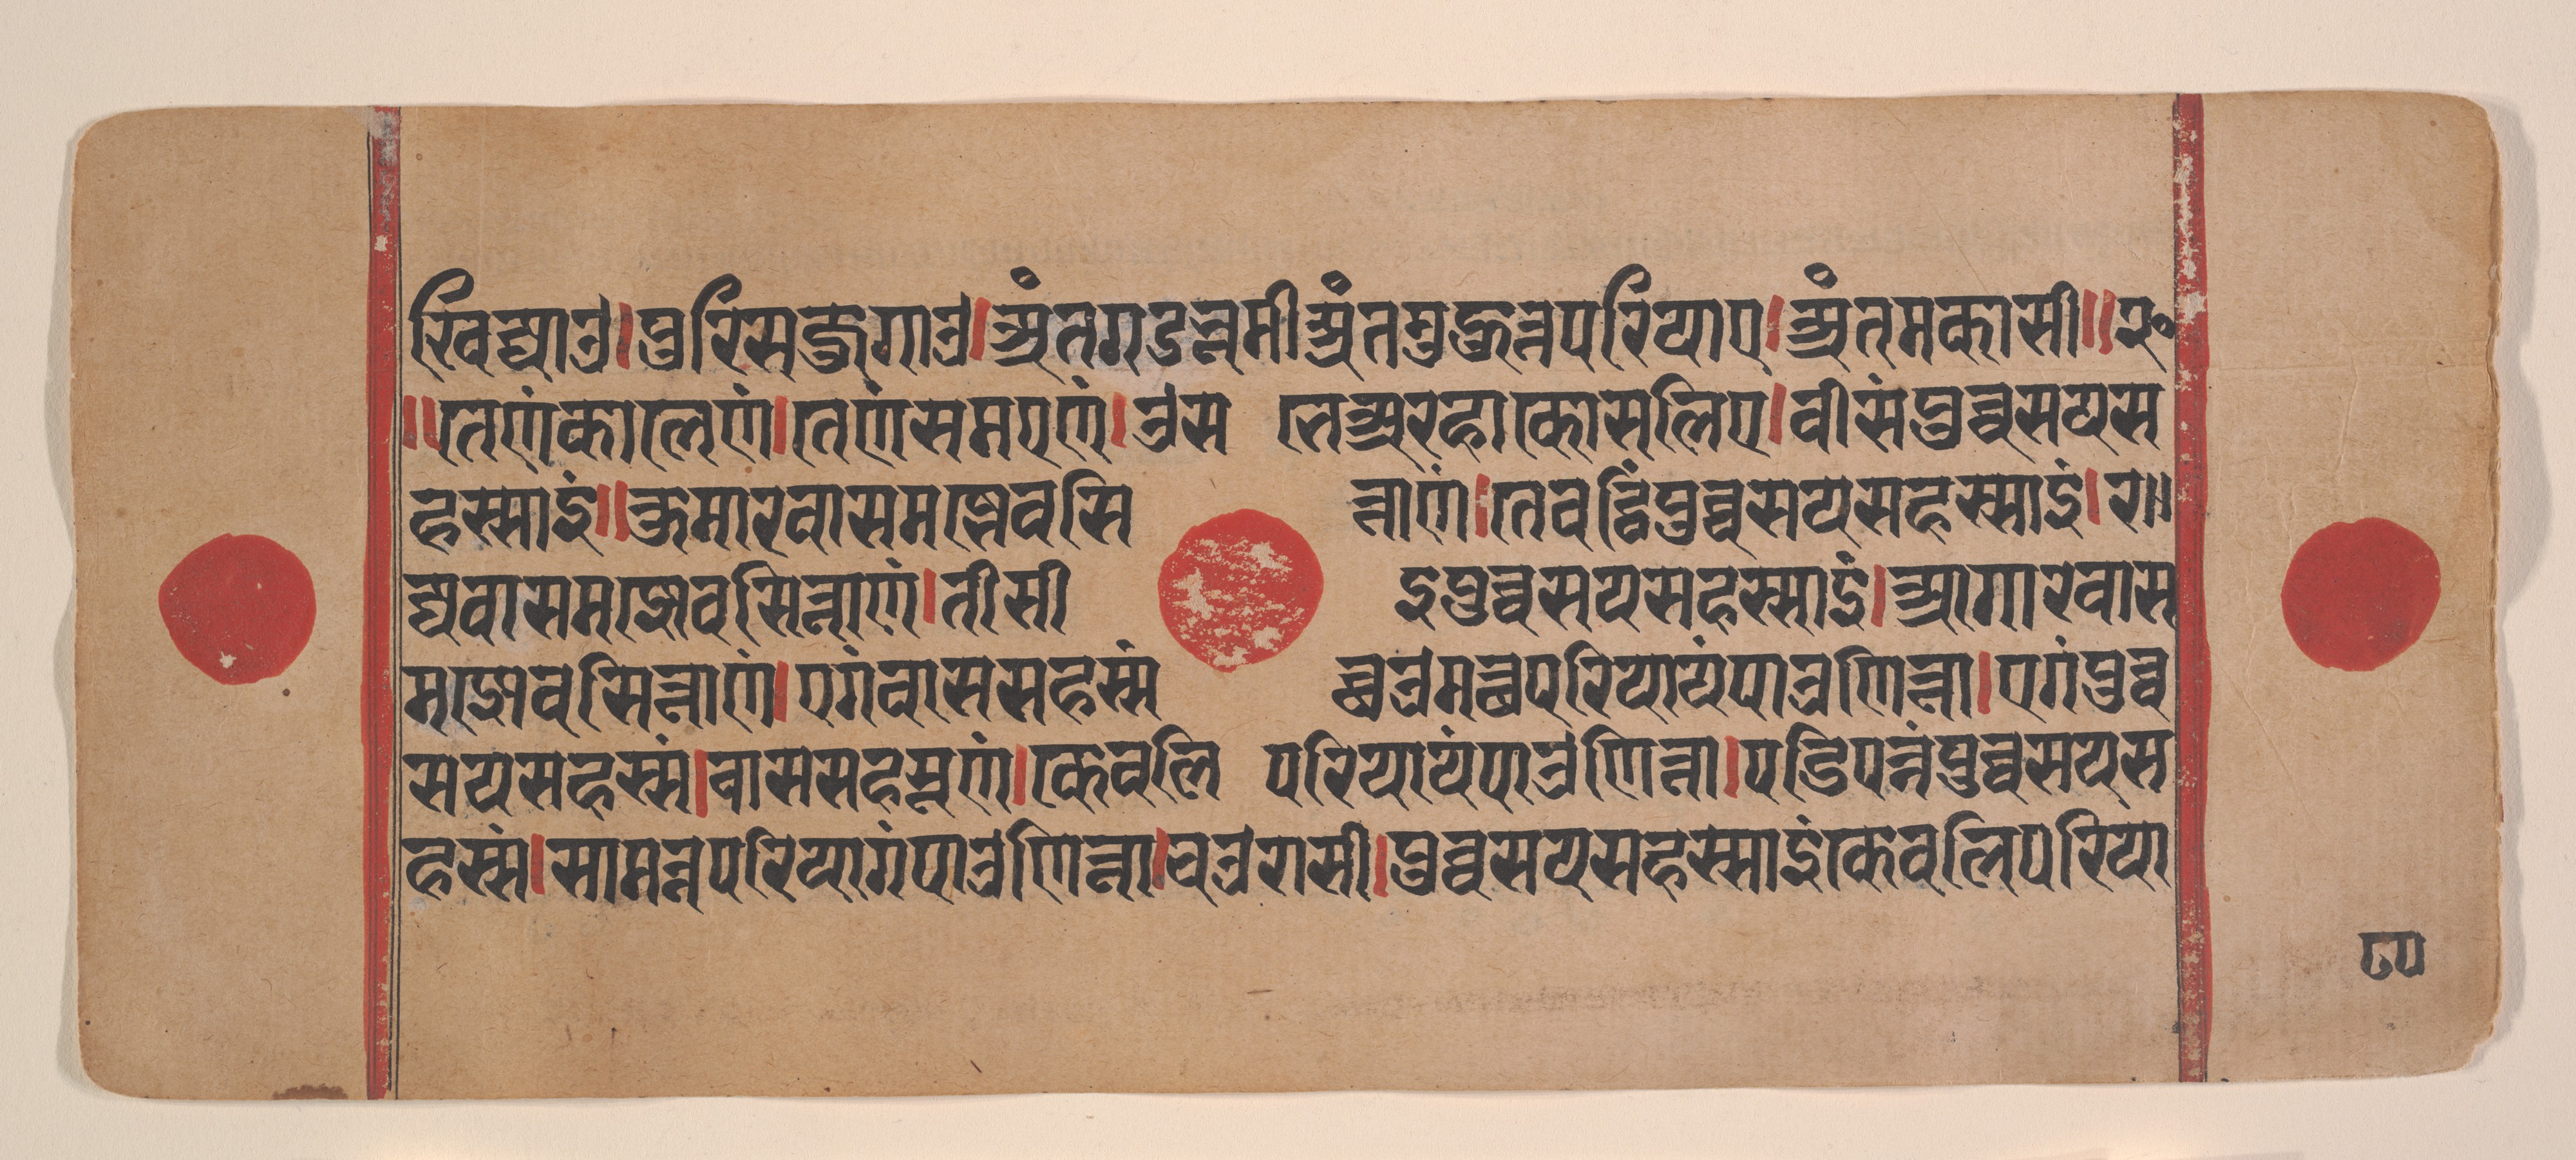 खिज्जाउ।पुरिसजुगाउ।अंतगडन्नमीअंतमुहुत्तपरियाए।अंतमकासी॥२०
॥तेणंकालेणं।तेणंसमएणं।उसभेअरहाकोसलिए।वीसंपुव्वसयस
हस्साइं॥कुमारवासमज्झेवसित्ताणं।तेवट्ठिंपुव्वसयसहस्साइं।र॥
ज्जवासमज्झेवसित्ताणं।तीसीइपुव्वसयसहस्साइं।अगारवास
मज्झेवसित्ताणं।एगंवाससहस्सं छउमछपरियायंपाउणित्ता।एगंपुव्व
सयसहस्सं।वाससहस्सूणं।केवलिपरियायंपाउणित्ता।पडिपुन्नंपुव्वसयस
हस्सं।सामन्नपरियागंपाउणित्ता।चउरासी।पुव्वसयसहस्साइंकेवलिपरिया
८५